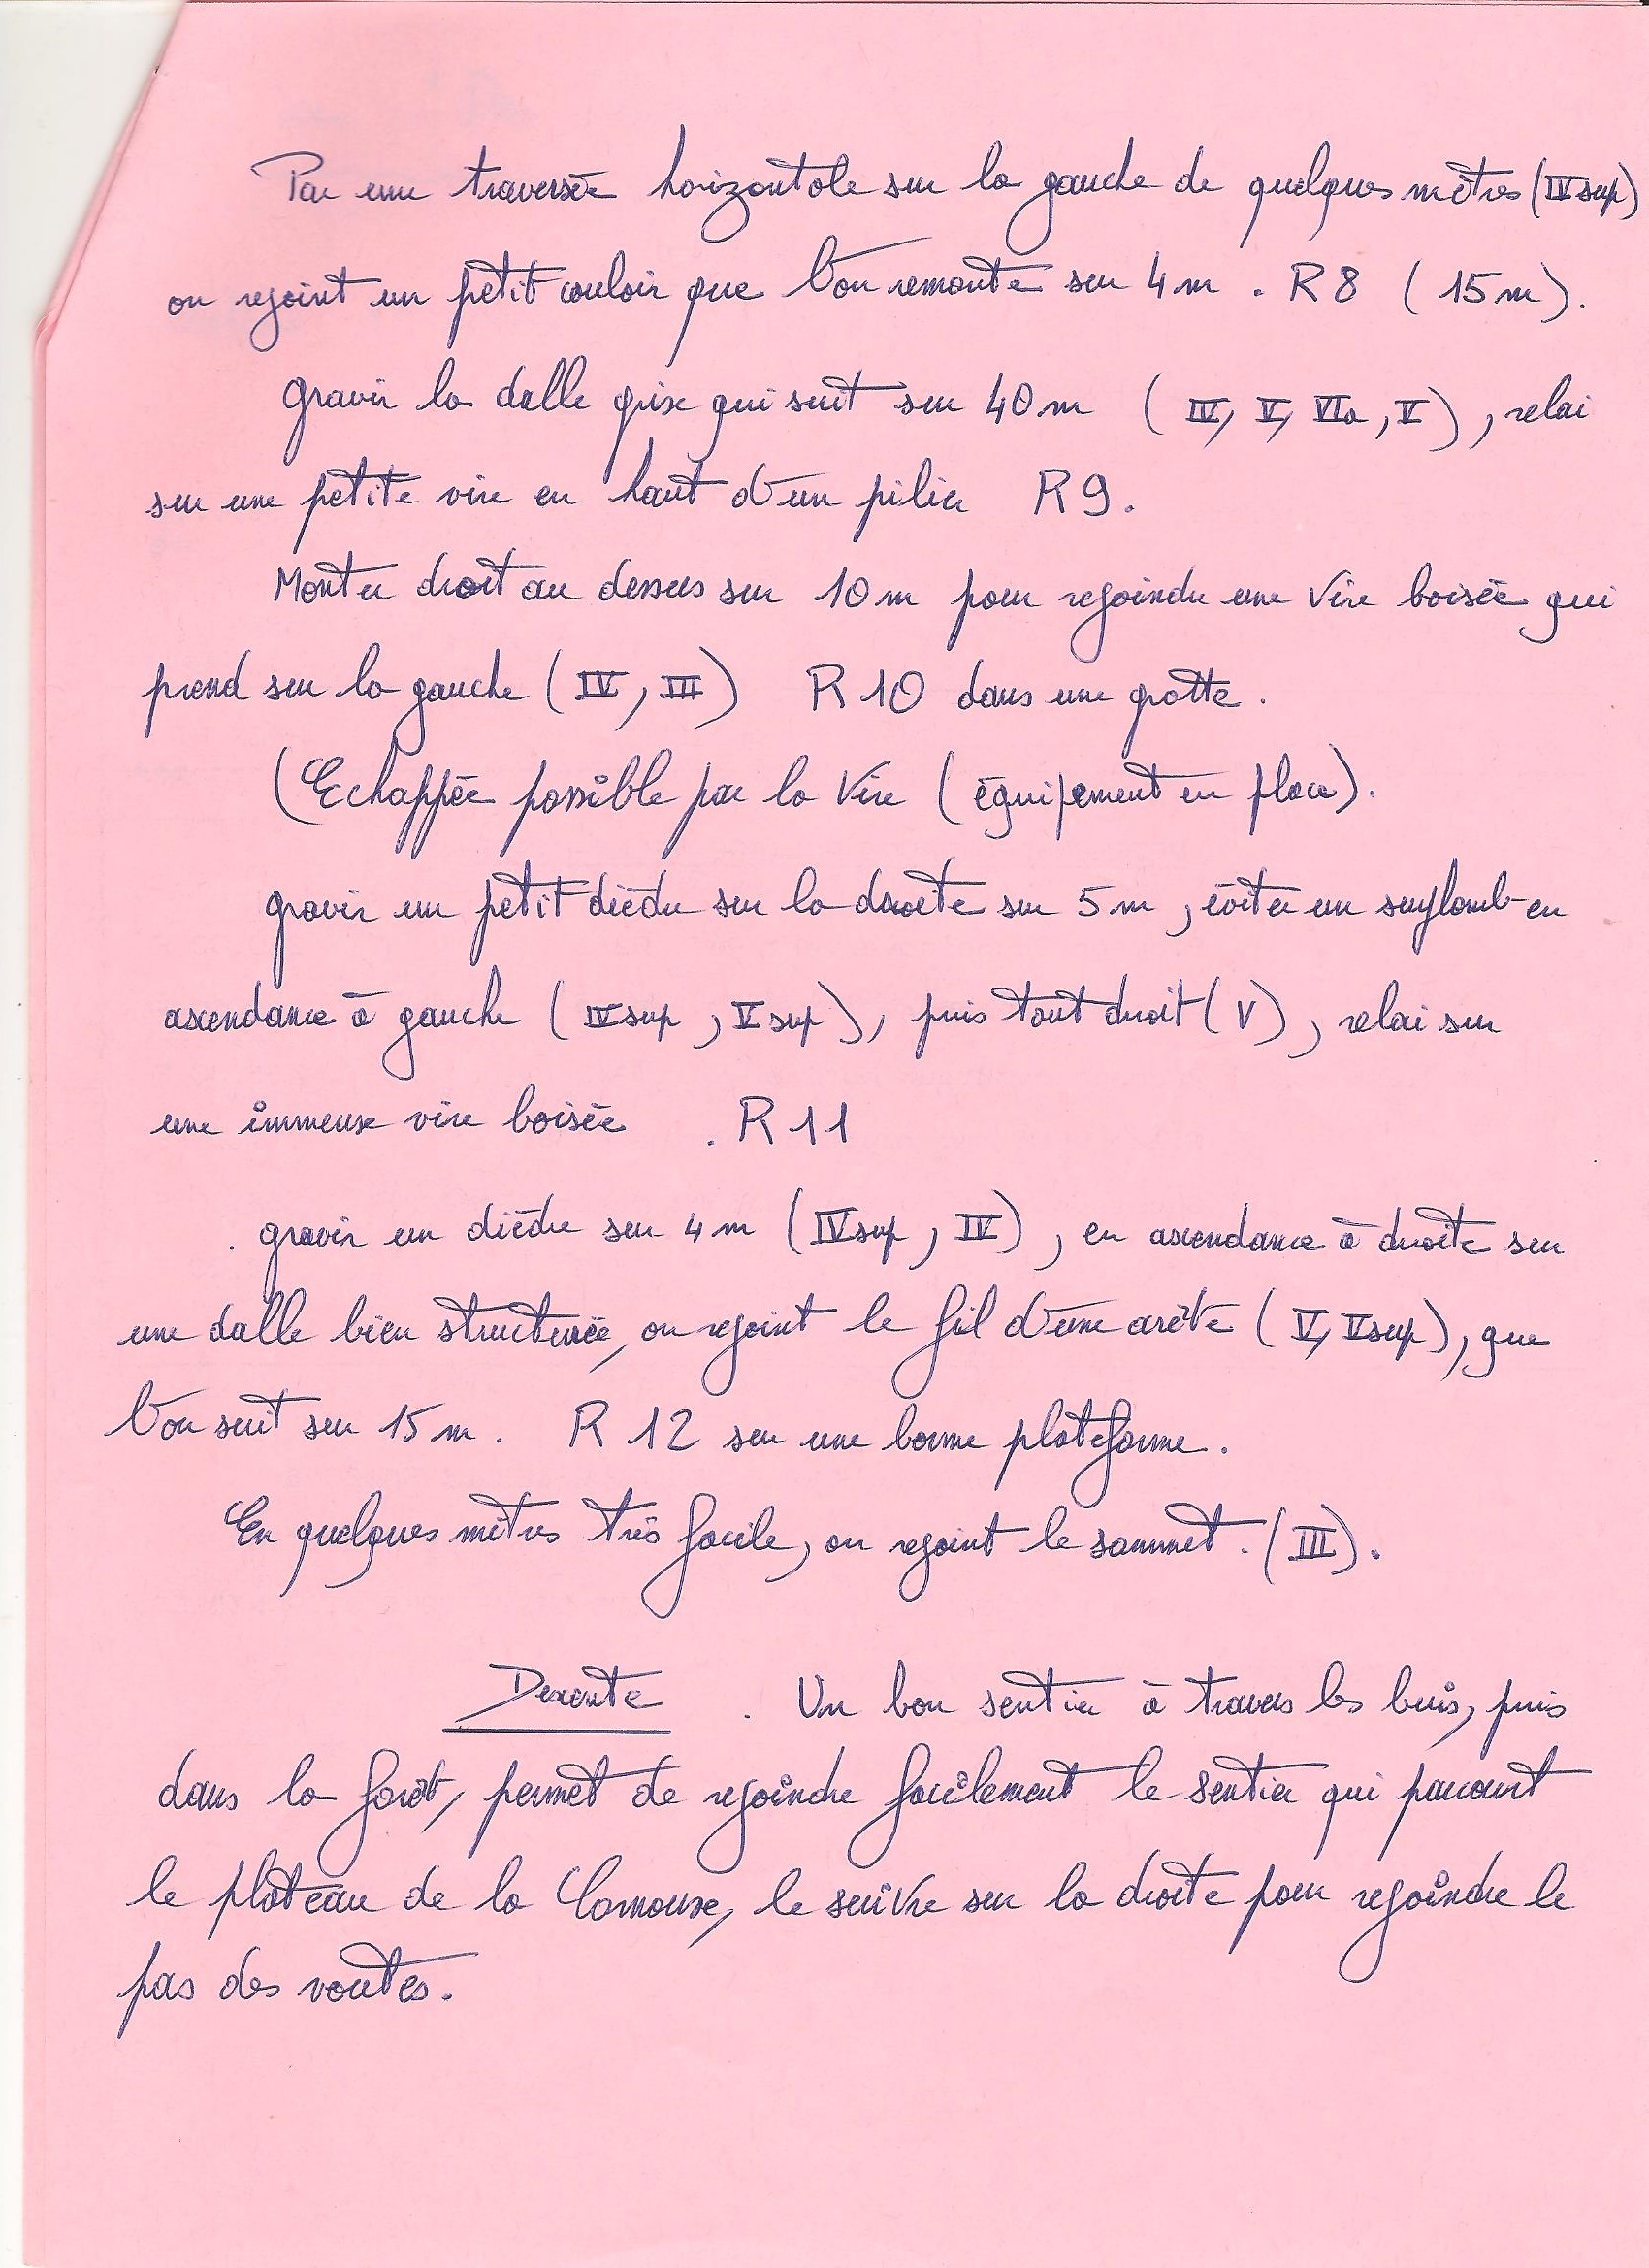 Par une traversée horizontale sur la gauche de quelques mètres (IV sup)
on rejoint un petit couloir que l'on remonte sur 4 m . R 8 ( 15 m ).
Gravir la dalle grise qui suit sur 40 m ( III, V, VIa, V ) , relai
sur une petite vire en haut d'un pilier R 9.
Monter droit au dessus sur 10 m pour rejoindre une vire boisée qui
prend sur la gauche ( IV, III ) R 10 dans une grotte .
( Echappée possible par la vire ( équipement en place ).
gravir un petit dièdre sur la droite sur 5 m , éviter un surplomb en
ascendance à gauche ( IV sup , V sup ), puis tout droit ( V ) , relai sur
une immense vire boisée . R 11
. gravir un dièdre sur 4 m ( IV sup , IV ) , en ascendance à droite sur
une dalle bien structurée, on rejoint le fil d'une arête ( V, V sup ), que
l'on suit sur 15 m . R 12 sur une bonne plateforme .
En quelques mètres très facile, on rejoint le sommet . ( III ).
Descente . Un bon sentier à travers les buis, puis
dans la forêt, permet de rejoindre facilement le sentier qui parcourt
le plateau de la Cornouse, le suivre sur la droite pour rejoindre le
pas des voutes .